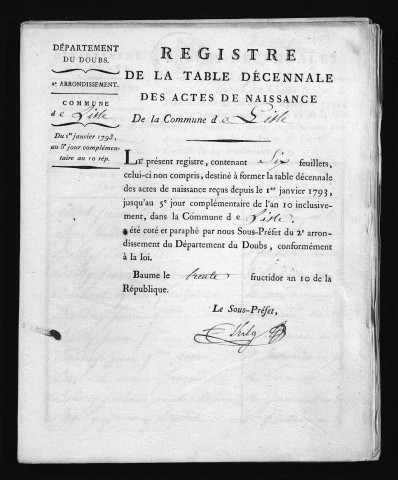 DÉPARTEMENT
DU DOUBS.
2e ARRONDISSEMENT.
COMMUNE
de Lisle
Du 1er janvier 1793,
au 5e jour complémen-
taire an 10 rép.
REGISTRE
DE LA TABLE DÉCENNALE
DES ACTES DE NAISSANCE
De la Commune de Lisle
LE présent registre, contenant Six feuillets,
celui-ci non compris, destiné à former la table décennale
des actes de naissance reçus depuis le 1er janvier 1793,
jusqu'au 5e jour complémentaire de l'an 10 inclusive-
ment, dans la Commune de Lisle.
a été coté et paraphé par nous Sous-Préfet du 2e arron-
dissement du Département du Doubs, conformément
à la loi.
Baume le trente fructidor an 10 de la
République.
Le Sous-Préfet,